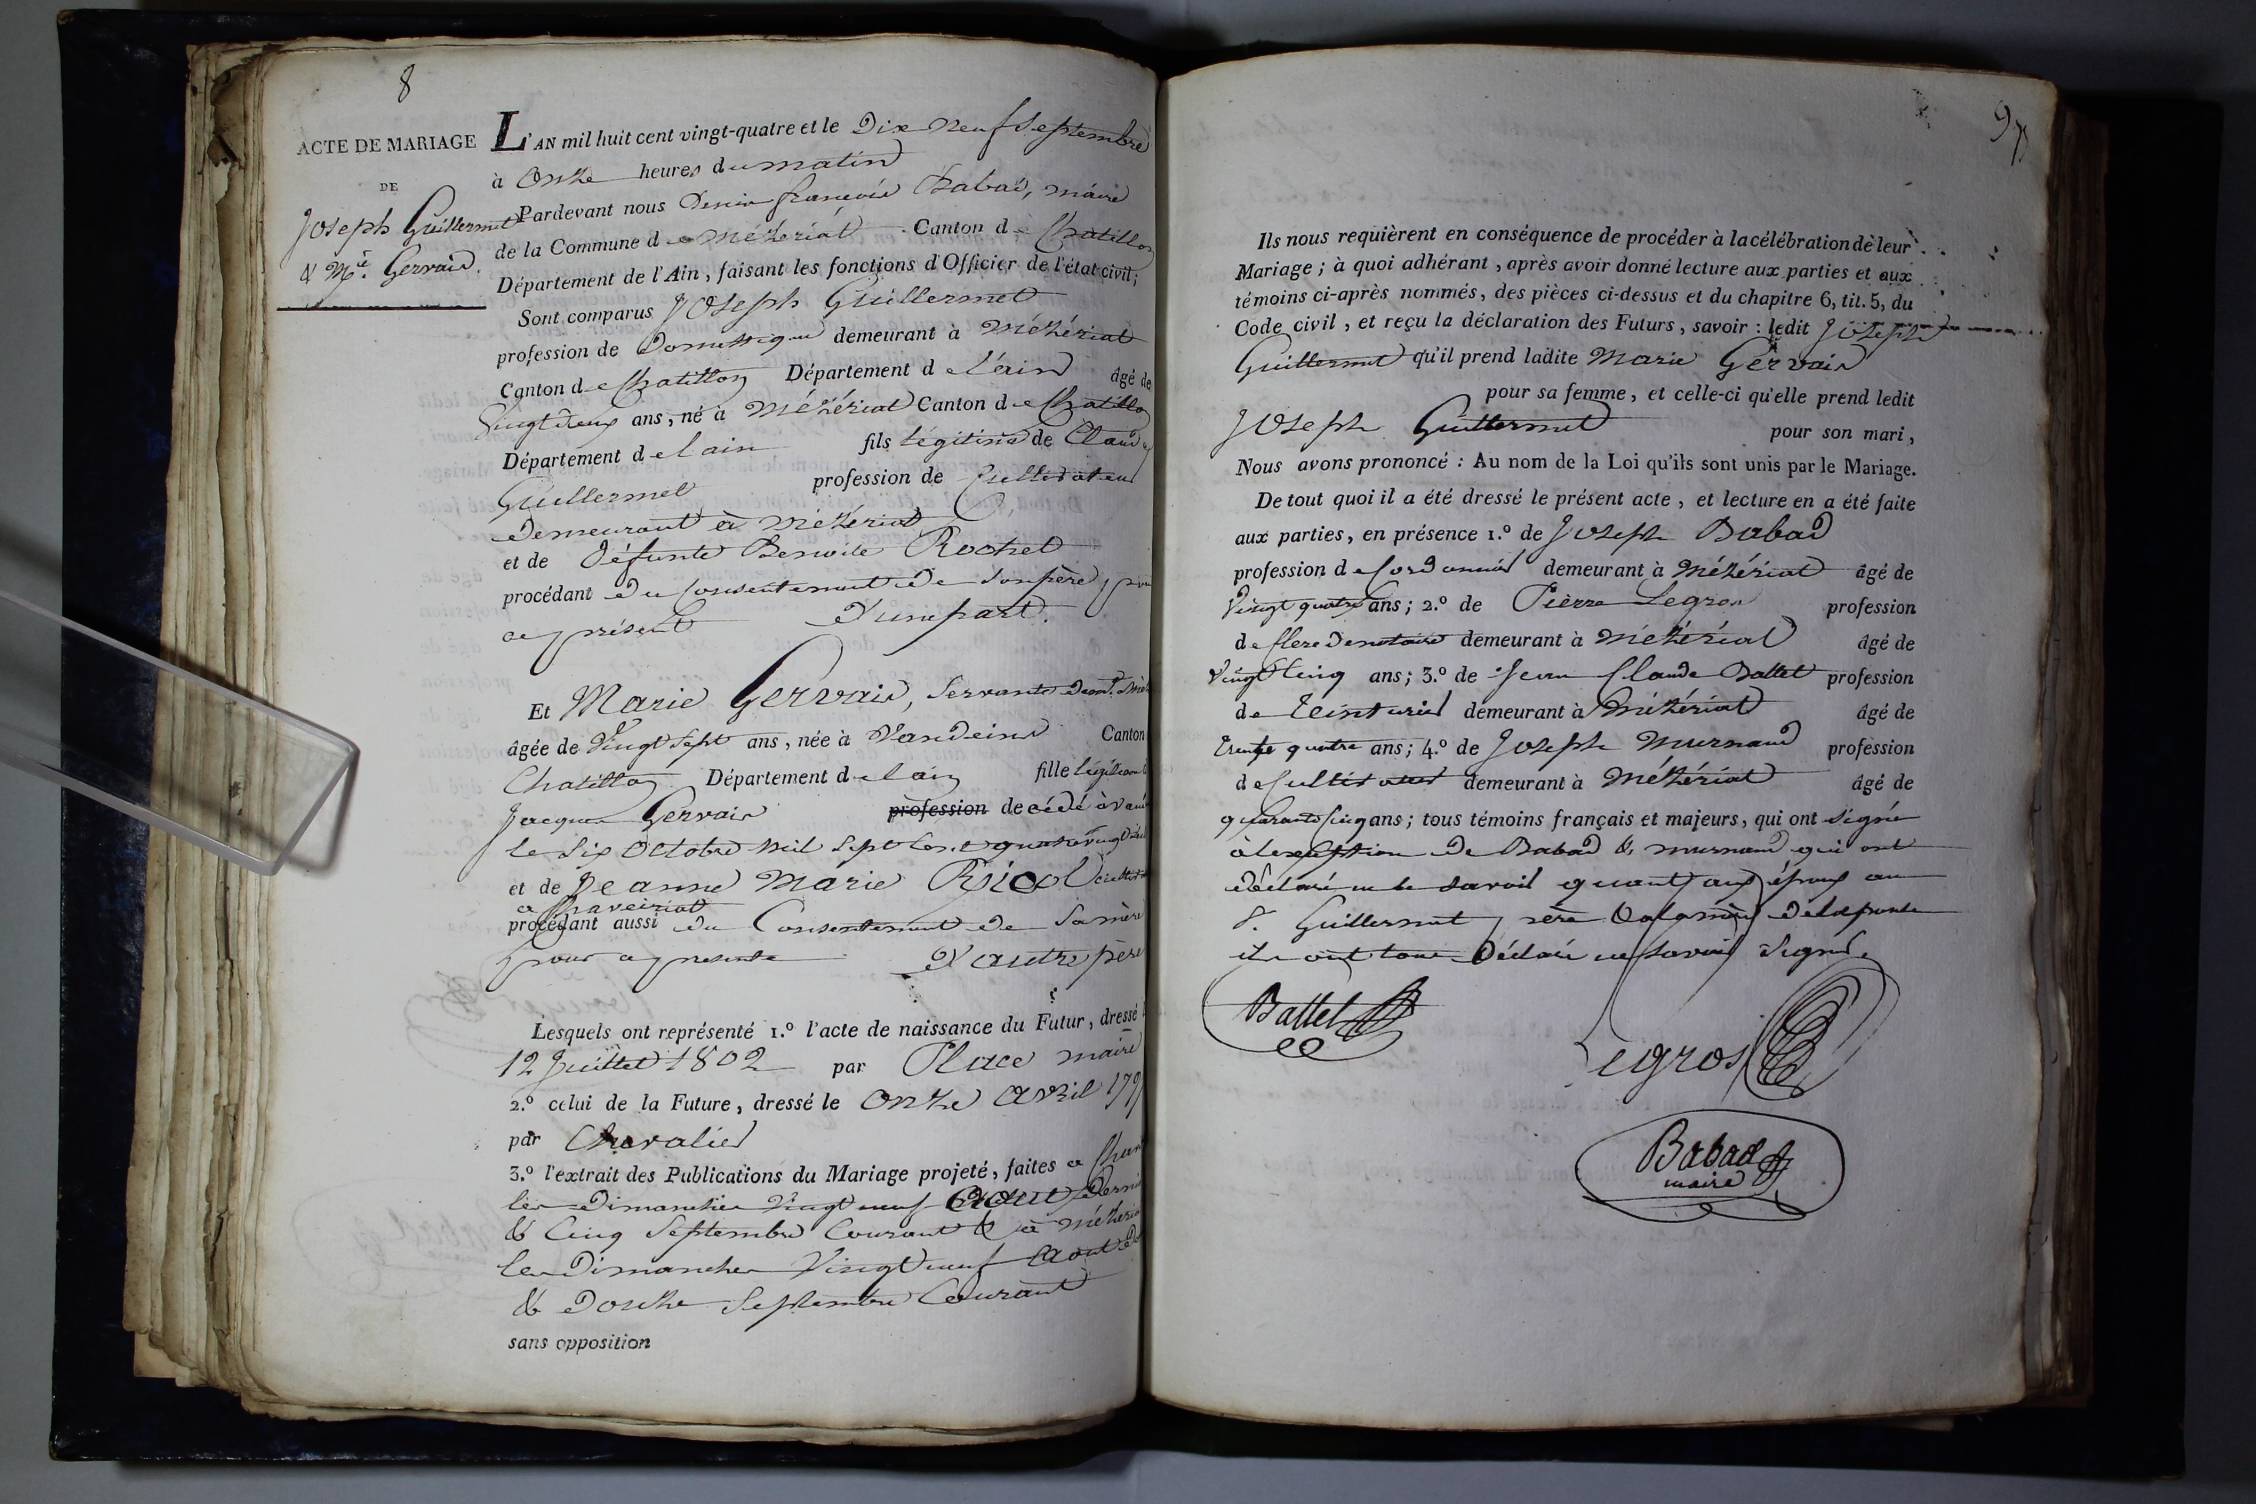 8
ACTE DE MARIAGE
DE
Joseph Guillermet
& Mie. Gervais.
L'AN mil huit cent vingt-quatre et le Dix neuf Septembre
à Onze heures du matin
Pardevant nous Denis françois Babad, maire
de la Commune de Mézériat Canton de Chatillon
Département de l'Ain, faisant les fonctions d'Officier de l'état civil;
Sont comparus Joseph Guillermet
profession de Domestique demeurant à Mézériat
Canton de Chatillon Département de l'ain âgé de
Vingt deux ans, né à Mézériat Canton de Chatillon
Département de l'ain fils légitime de Claude
Guillermet profession de Cultivateur
Demeurant à Mézériat
et de Défunte Benoite Rochet
procédant du Consentement de Son père, pour
ce présent D'une part.
Et Marie Gervais, Servante
âgée de Vingt Sept ans, née à Vandeins Canton
Chatillon Département de l'ain fille légitime
Jacques Gervais profession decédé à
le Six Octobre mil Sept Cent quatre vingt
et de Jeanne Marie
a Chaveiriat
procédant aussi du Consentement de Sa mère
pour ce présente D'autre père
Lesquels ont représenté 1.º l'acte de naissance du Futur, dressé
12 Juillet 1802 par Place maire
2.º celui de la Future, dressé le Onze Avril
par Chevalier
3.º l'extrait des Publications du Mariage projeté, faites a
les Dimanches Vingt neuf Aout Dernier
& Cinq Septembre Courant & à Mézériat
les Dimanches Vingt neuf Aout
& Douze Septembre Courant
sans opposition
Ils nous requièrent en conséquence de procéder à la célébration de leur
Mariage; à quoi adhérant, après avoir donné lecture aux parties et aux
témoins ci-après nommés, des pièces ci-dessus et du chapitre 6, tit. 5, du
Code civil, et reçu la déclaration des Futurs, savoir: ledit Joseph
Guillermet qu'il prend ladite Marie Gervais
pour sa femme, et celle-ci qu'elle prend ledit
Joseph Guillermet pour son mari,
Nous avons prononcé: Au nom de la Loi qu'ils sont unis par le Mariage.
De tout quoi il a été dressé le présent acte, et lecture en a été faite
aux parties, en présence 1.º de Joseph Babad
profession de Cordonnier demeurant à Mézériat âgé de
Vingt quatre ans; 2.º de Pierre Legros profession
de Clerc de notaire demeurant à Mézériat âgé de
Vingt Cinq ans; 3.º de Jean Claude Battet profession
de Teinturier demeurant à Mézériat âgé de
Trente quatre ans; 4.º de Joseph Murnaud profession
de Cultivateur demeurant à Mézériat âgé de
quarante Cinq ans; tous témoins français et majeurs, qui ont Signé
à l'exception de Babad & Murnaud qui ont
Déclaré ne le Savoir quant aux époux au
S. Guillermet père & a la mère De l'épouse
ils ont tous Déclaré ne Savoir Signer.
Battet
Legros
Babad
maire